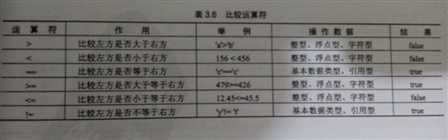 表 3.6 比较运算符
运 算 符 作 用 举 例 操 作 数 据 结 果
> 比较左方是否大于右方 'a'>'b' 整型、浮点型、字符型 false
< 比较左方是否小于右方 156 < 456 整型、浮点型、字符型 false
== 比较左方是否等于右方 'c'=='c' 基本数据类型、引用型 true
>= 比较左方是否大于等于右方 479>=426 整型、浮点型、字符型 true
<= 比较左方是否小于等于右方 12.45<=45.5 整型、浮点型、字符型 true
!= 比较左方是否不等于右方 基本数据类型、引用型 true